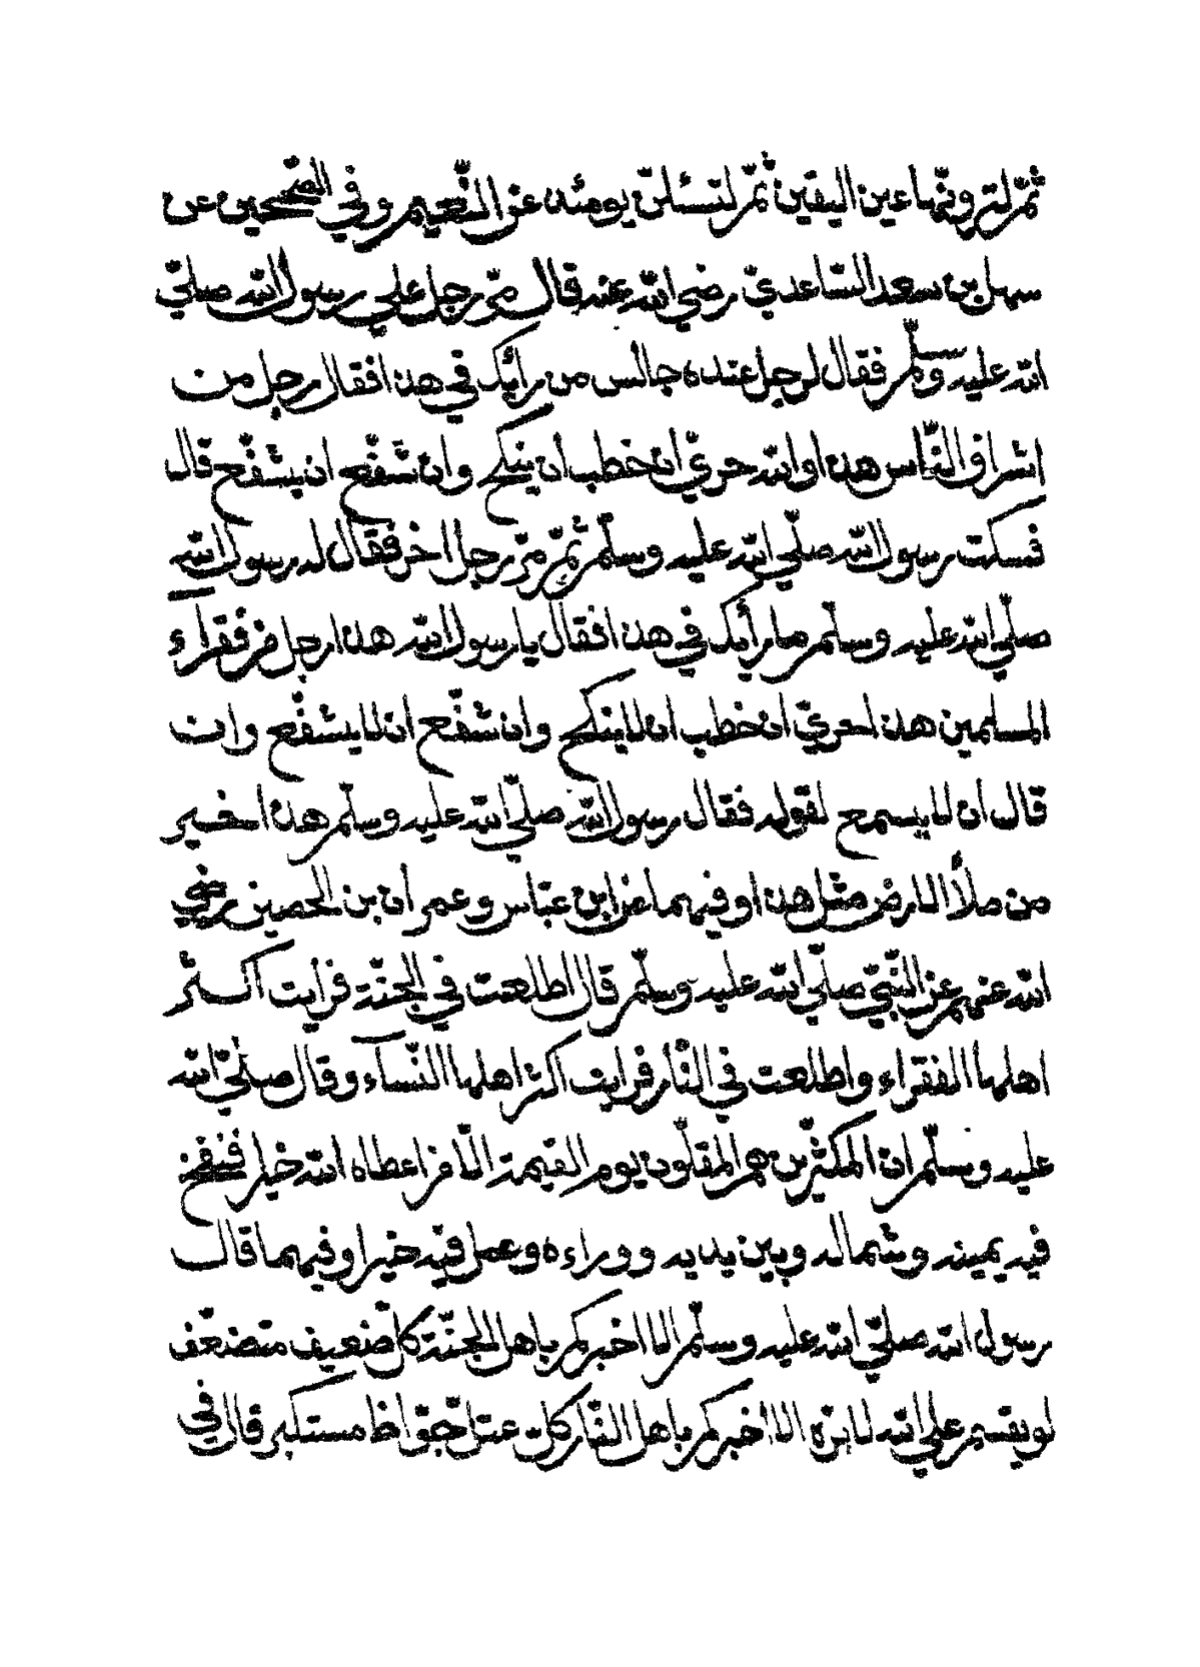 ثمّ لترونّها عين اليقين ثمّ لتسئلنّ يومئذ عن النّعيم وفي الصّحيحين عن
سهل بن سعد السّاعديّ رضي اللّه عنه قال مرّ رجل علي رسول اللّه صلّي
اللّه عليه وسلّم فقال لرجل عنده جالس من رأيك في هذا فقال رجل من
اشراف النّاس هذا واللّه حريّ ان خطب أن ينكح وان شفّع ان يشفّع قال
فسكت رسول اللّه صلّي اللّه عليه وسلّم ثمّ مرّ رجل اخر فقال له رسول اللّه
صلّي اللّه عليه وسلّم ما رأيك في هذا فقال يا رسول اللّه هذا رجل من فقراء
المسلمين هذا احريّ ان خطب ان لا ينكح وان شفّع ان لا يشفّع وان
قال ان لا يسمع لقوله فقال رسول اللّه صلّي اللّه عليه وسلّم هذا خير
من ملأ الارض مثل هذا وفيهما عن ابن عبّاس وعمران بن الحصين رضي
اللّه عنهم عن النّبيّ صلّي اللّه عليه وسلّم قال اطلعت في الجنّة فرأيت اكثر
اهلها الفقراء واطلعت في النّار فرايت اكثر اهلها النّسآء وقال صلّيّ اللّه
عليه وسلّم ان المكثرّين هم المقلّون يوم القيمة الّا من اعطاه اللّه خيرا فنفخ
فيه يمينه وشماله وبين يديه ووراءه وعمل فيه خيرا وفيهما قال
رسول اللّه صلّيّ اللّه عليه وسلّم الا اخبركم باهل الجنّة كلّ ضعيف متضعّف
لو يقسم علي اللّه لابرّه الا اخبركم باهل النّار كلّ عتلّ جوّاظ مستكبر قال في